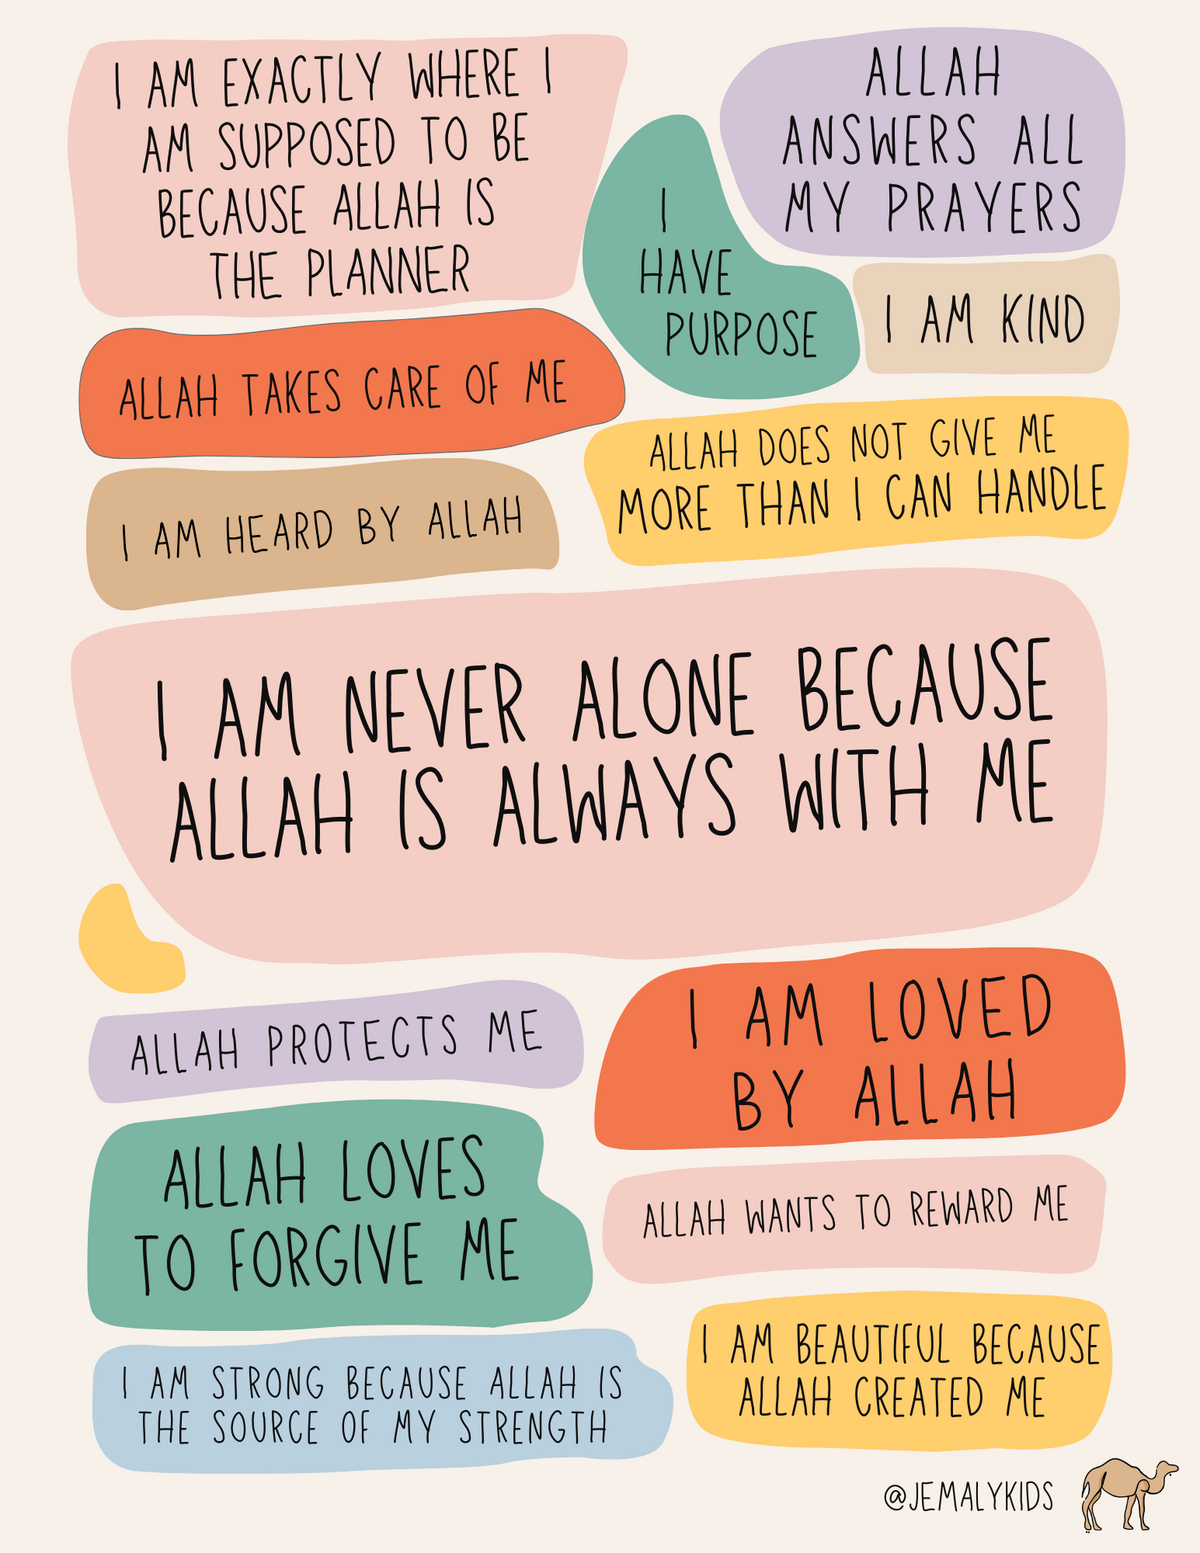 I AM EXACTLY WHERE I
AM SUPPOSED TO BE
BECAUSE ALLAH IS
THE PLANNER
ALLAH
ANSWERS ALL
MY PRAYERS
I
HAVE
PURPOSE
I AM KIND
ALLAH TAKES CARE OF ME
ALLAH DOES NOT GIVE ME
MORE THAN I CAN HANDLE
I AM HEARD BY ALLAH
I AM NEVER ALONE BECAUSE
ALLAH IS ALWAYS WITH ME
ALLAH PROTECTS ME
I AM LOVED
BY ALLAH
ALLAH LOVES
TO FORGIVE ME
ALLAH WANTS TO REWARD ME
I AM STRONG BECAUSE ALLAH IS
THE SOURCE OF MY STRENGTH
I AM BEAUTIFUL BECAUSE
ALLAH CREATED ME
@JEMALYKIDS